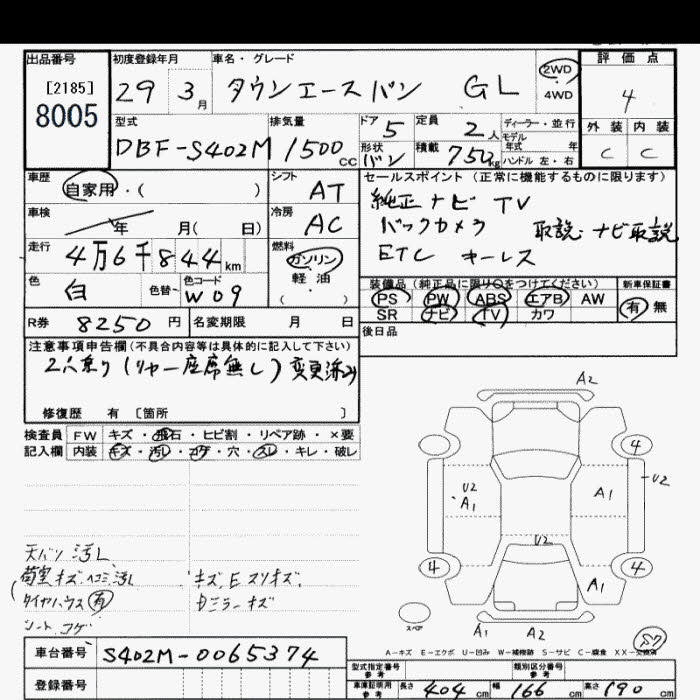 出品番号
[2185]
8005
初度登録年月
29 3月
車名・グレード
タウンエースバン GL
2WD
4WD
評価点
4
外装 内装
C C
型式
DBF-S402M
排気量
1500cc
ドア 5
形状 バン
定員 2人
積載 750kg
ディーラー・並行
モデル年式 年
ハンドル 左・右
車歴
自家用・( )
シフト
AT
車検
年 月( 日)
冷房
AC
走行
4万6千844km
燃料
ガソリン
軽油
( )
色
白
色替
色コード
W09
R券 8250円
名変期限 月 日
セールスポイント (正常に機能するものに限ります)
純正ナビ TV
バックカメラ 取説・ナビ取説
ETC キーレス
装備品 (純正品に限り○をつけてください)
PS PW ABS エアB AW
SR ナビ TV カワ
新車保証書
有 無
後日品
注意事項申告欄(不具合内容等は具体的に記入して下さい)
2人乗り(リヤー座席無し)変更済み
修復歴 有 [箇所 ]
検査員 FW キズ・飛石・ヒビ割・リペア跡・×要
記入欄 内装 キズ・汚レ・コゲ・穴・スレ・キレ・破レ
天バリ汚レ
荷室キズヘコミ汚レ キズEスリキズ
タイヤハウス有
シートコゲ
A2
4
U2
A1
A1
U2
U2
4
4
A1
スペア
A1
A2
S7
A-キズ E-エクボ U-凹み W-補修跡 S-サビ C-腐食 XX-交換済
車台番号 S402M-0065374
登録番号
型式指定番号 参考
類別区分番号 参考
車庫証明用 参考 長さ 404cm 幅 166cm 高さ 190cm